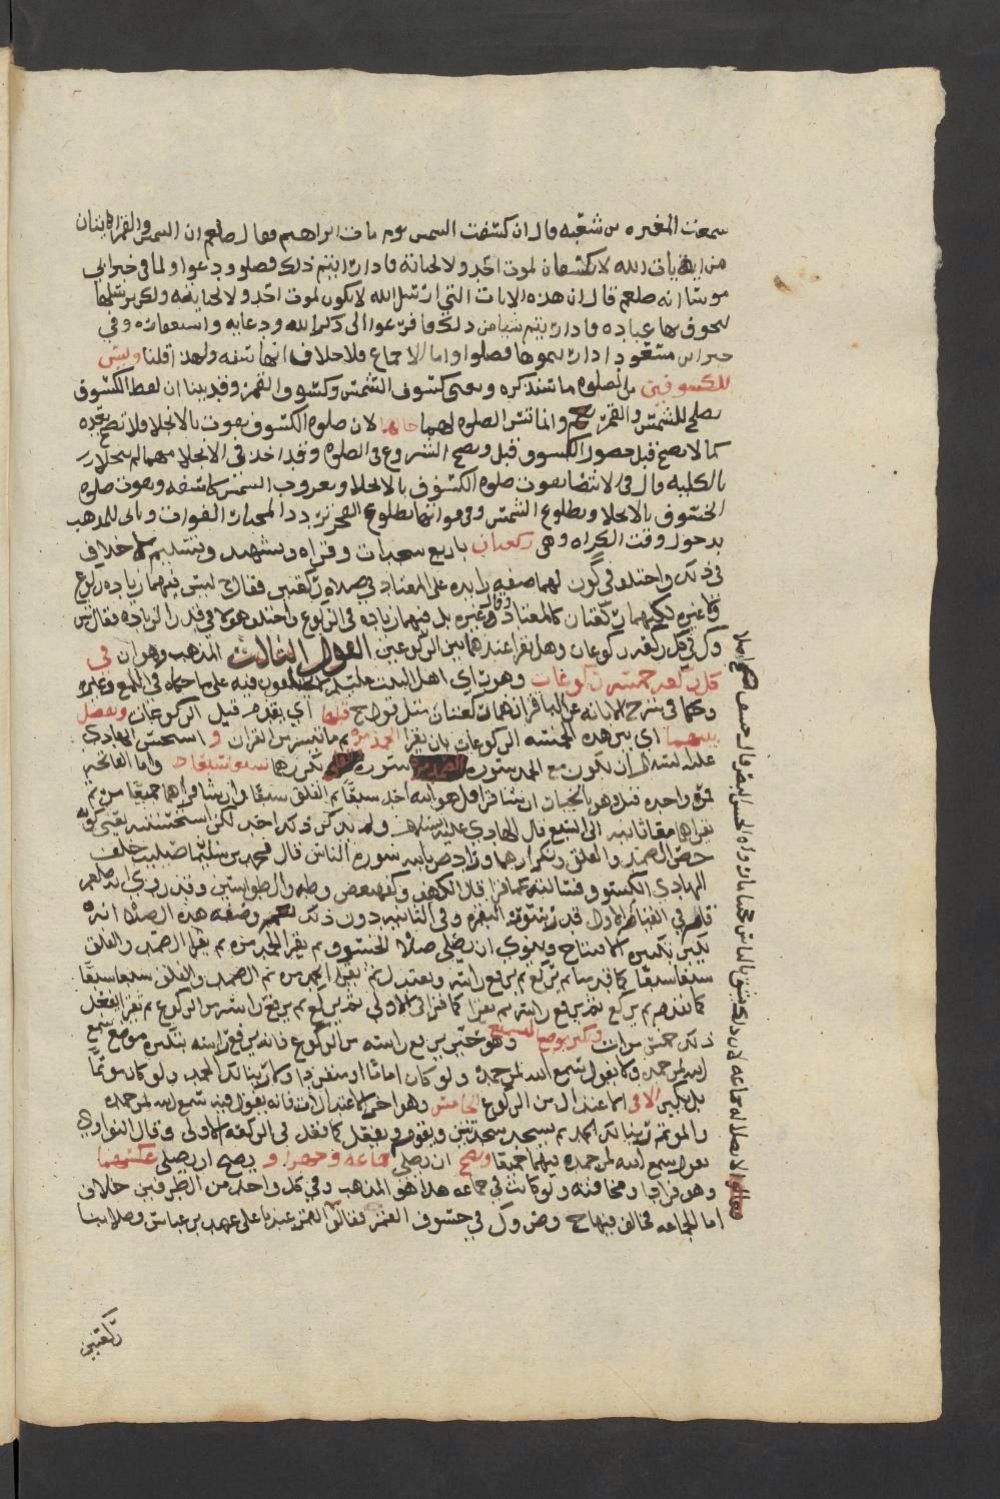 سمعت المغيره بن شعبه قال انكسفت الشمس يوم مات ابراهيم فقال صلعم ان الشمس والقمر ايتان
من ايات الله لا يكسفان لموت احد ولا لحياته فاذا رايتم ذلك فصلوا وادعوا ولما في خبر ابي
موسا انه صلعم قال ان هذه الايات التي يرسل الله لا يكون لموت احد ولا لحياته ولكن يرسلها
يخوف بها عباده فاذا رايتم شيا من ذلك فافزعوا الى ذكر الله ودعايه واستغفاره وفي
خبر ابن مسعود اذا رايتموها فصلوا واما الاجماع فلا خلاف انها سنه ولهذا قلنا ويسن
للكسوفين من الصلوه ما سنذكره ويعني كسوف الشمس وكسوف القمر وقد بينا ان لفظ الكسوف
يصلح للشمس والقمر وانما تسن الصلوه لهما حالهما لان صلوه الكسوف تفوت بالانجلا فلا تصح بعده
كما لا تصح قبل حصول الكسوف قيل ويصح الشروع في الصلوه وقد اخذ في الانجلا مهما لم ينجلا
بالكليه قال في الانتصار تفوت صلوه الكسوف بالانجلا وبغروب الشمس كاسفه وتفوت صلوه
الخسوف بالانجلا وبطلوع الشمس وفي فواتها بطلوع الفجر تردد المختار الفوات وياتي للمذهب
بدخول وقت الكراهه وهي ركعتان باربع سجدات وقراه وتشهد وتسليم لا خلاف
في ذلك واختلف هل يكون لهما صفه زايده على المعتاد في صلاه ركعتين فقال ح ليس فيهما زياده ركوع
ولا غيره لكنهما ركعتان كالمعتاد وقال وغيره بل فيهما زياده في الركوع واختلف هولا في قدر الزياده فقال ش
وك في كل ركعه ركوعان وهل يقرا عندهما بين الركوعين القول الثالث المذهب وهو ان في
كل ركعه خمسه ركوعات وهو راي اهل البيت عليهم السلم
وحكا في شرح الابانه عن الباقر انهما ركعتان مثل قول ح قبلها اي يقدم قبل الركوعات ويفصل
بينهما اي بين هذه الخمسه الركوعات بان يقرا الحمد مره ثم ما تيسر من القران و استحسن الهادي
عليه السلم ان تكون مع الحمد سوره الصمد مره وسوره الفلق يكررهما سبعا سبعا واما الفاتحه
مره واحده قيل وهو بالخيار ان شا قرا قل هو الله احد سبعا ثم الفلق سبعا وان شا قراهما جميعا مره ثم
يقراهما معا ثانيه الى السبع قال الهادي عليه السلم ولم يذكر ذلك احد لكن استحسنته يعني كونه
خص الصمد والفلق وتكرارهما وزاد ص بالله سوره الناس قال محمد بن سليمان صليت خلف
الهادي الكسوف فسالته عما قرا قال الكهف وكهيعص وطه والطواسين وقد روي انه صلعم
قام في القيام الاول قدر سوره البقره وفي الثانيه دون ذلك وصفه هذه الصلاه انه
يكبر تكبيره الافتتاح وينوي ان يصلي صلاه الخسوف ثم يقرا الحمد مره ثم يقرا الصمد والفلق
سبعا سبعا كما قدمنا ثم يركع ثم يرفع راسه ويعتدل ثم يقرا الحمد مره ثم الصمد والفلق سبعا سبعا
كما تقدم ثم يركع ثم يرفع راسه ثم يقرا كما قرا في الاولى ثم يركع ثم يرفع راسه من الركوع ثم يقرا يفعل
ذلك خمس مرات وكبر موضع التسميع وهو حين يرفع راسه من الركوع فانه يرفع راسه بتكبيره موضع سمع
الله لمن حمده ولا يقول سمع الله لمن حمده ولو كان اماما او منفردا ولا ربنا لك الحمد ولو كان موتما
بل يكبر الا في الاعتدال من الركوع الخامس وهو اخر الاعتدالات فانه يقول فيه سمع الله لمن حمده
والموتم ربنا لك الحمد ثم يسجد سجدتين ويقوم ويفعل كما فعل في الركعه الاولى وقال النواوي
يقول سمع الله لمن حمده فيهما جميعا ويصح ان يصلي جماعه وجهرا و يصح ان يصلي عكسهما
وهو فرادا ومخافته ولو كانت في جماعه هذا هو المذهب وفي كل واحد من الطرفين خلاف
اما الجماعه فخالف فيها ح وص وك في خسوف القمر فقالوا عهد بن عباس وصلا بنا
ركعتين